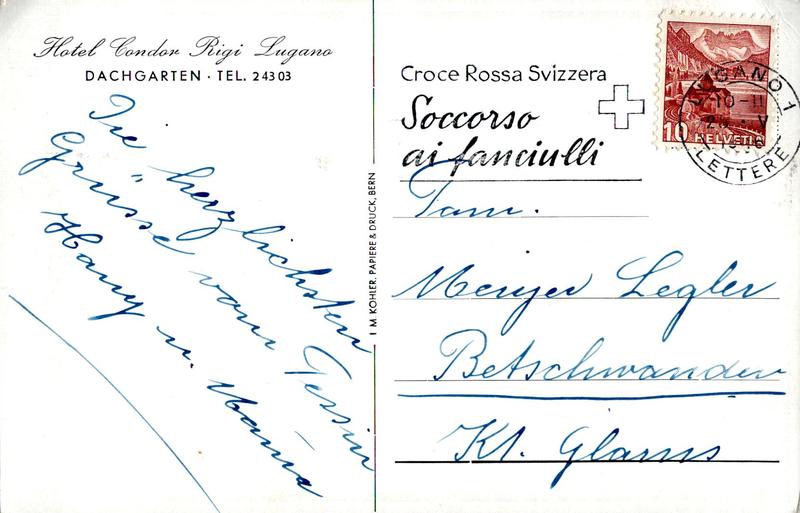 Hotel Condor Rigi Lugano
DACHGARTEN · TEL. 2 43 03
Die herzlichsten
Grüsse vom Tessin
Hany u. Mama
I. M. KOHLER, PAPIERE & DRUCK, BERN
Croce Rossa Svizzera
Soccorso
ai fanciulli
LUGANO 1
10-11
LETTERE
10 HELVETIA
Fam.
Menzer Legler
Betschwanden
Kt. Glarus